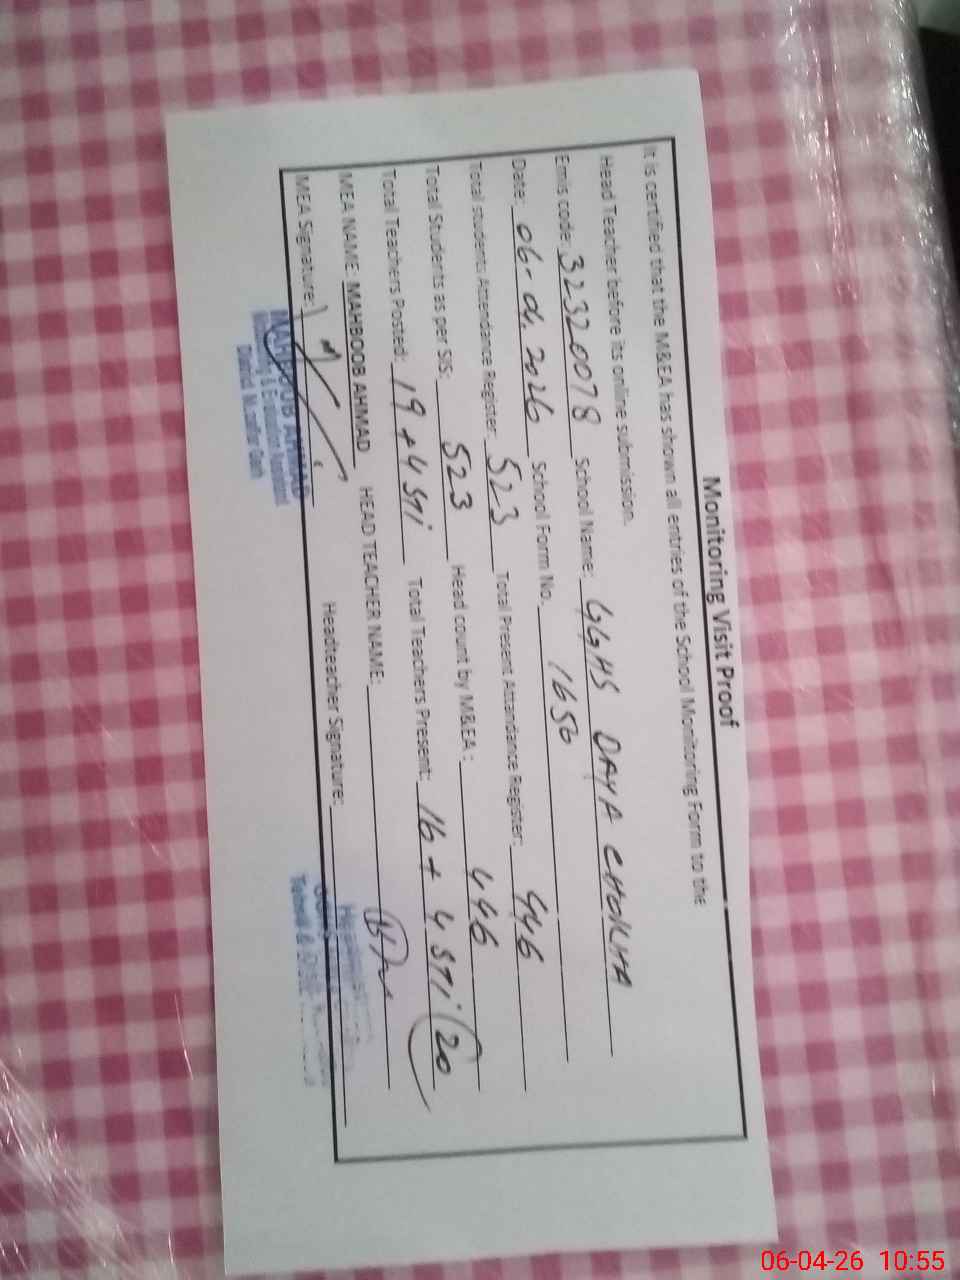 Monitoring Visit Proof
It is certified that the M&EA has shown all entries of the School Monitoring Form to the
Head Teacher before its online submission.
Emis code: 32320078 School Name: GGHS DAYA CHOKHA
Date: 06-04.2026 School Form No. 1656
Total students Attendance Register: 523 Total Present Attendance Register: 446
Total Students as per SIS: 523 Head count by M&EA: 446
Total Teachers Posted: 19+4 STI Total Teachers Present: 16+4 STI (20
MEA NAME MAHBOOB AHMAD HEAD TEACHER NAME:
MEA Signature: Headteacher Signature:
MAHBOOB AHMAD
Monitoring & Evaluation Assistant
District Muzaffar Garh
06-04-26 10:55